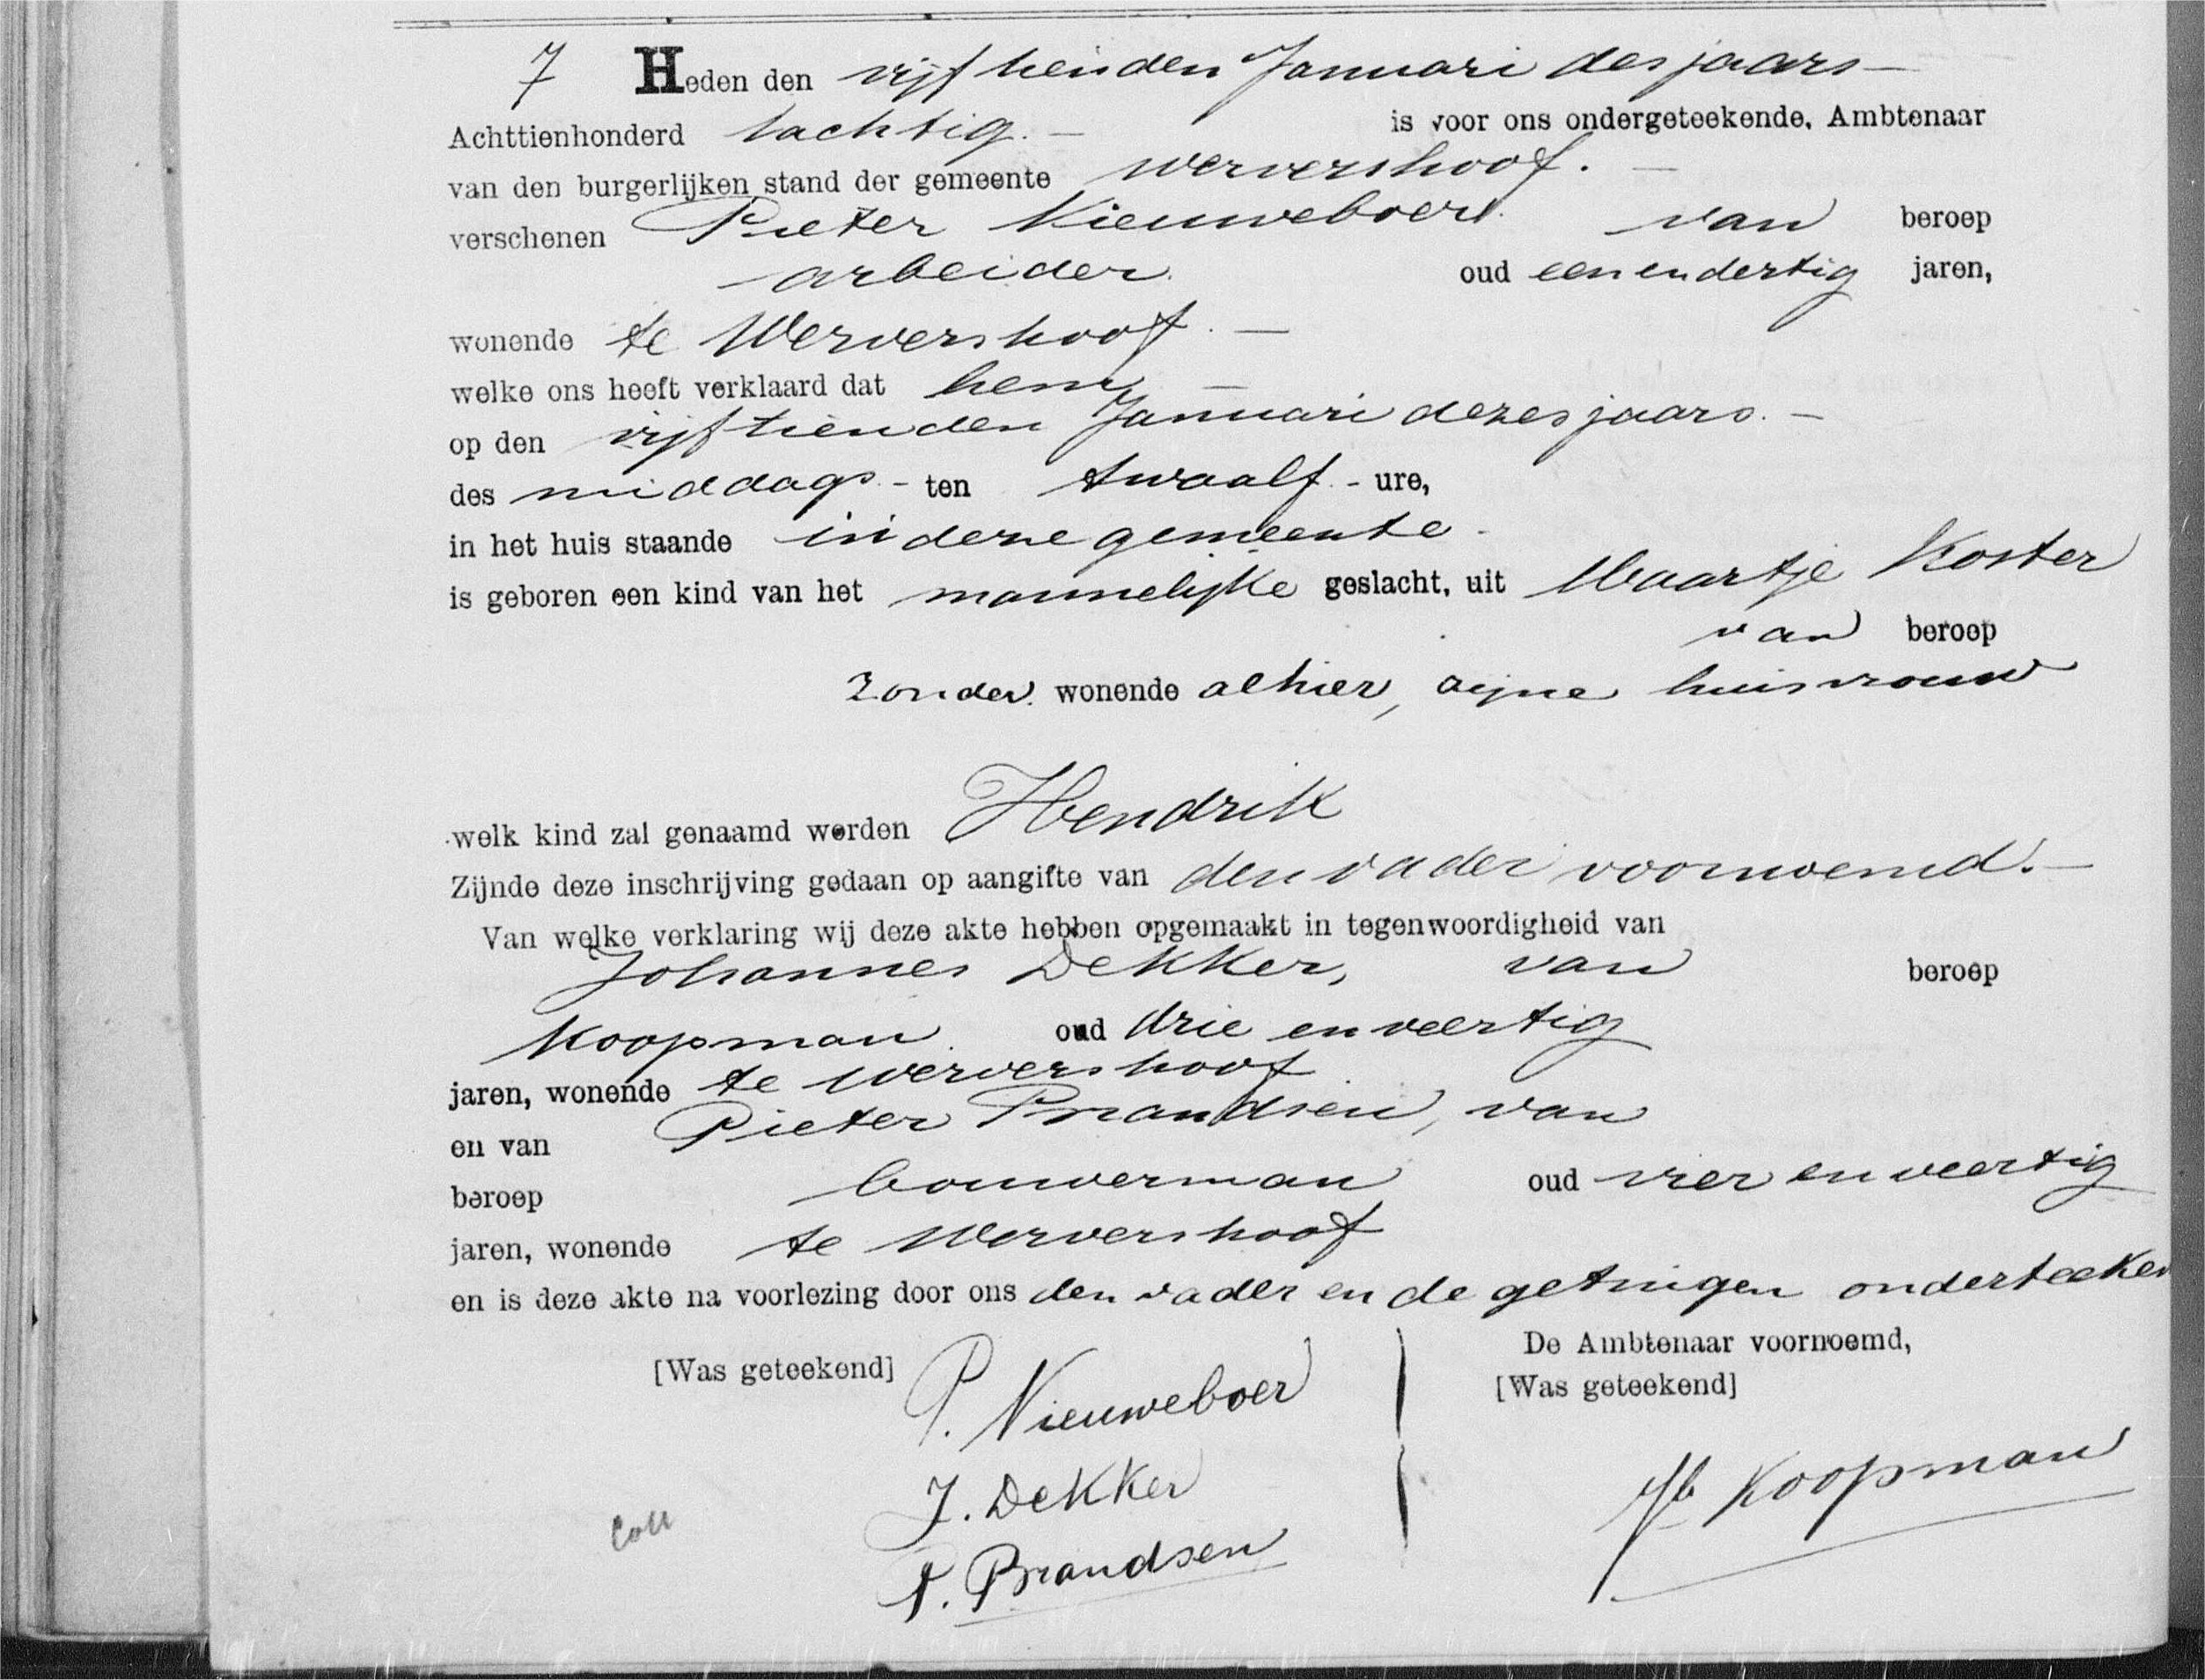 7 Heden den vijftienden Januari des jaars
Achttienhonderd tachtig. is voor ons ondergeteekende, Ambtenaar
van den burgerlijken stand der gemeente Wervershoof.
verschenen Pieter Nieuweboer. van beroep
arbeider. oud eenendertig jaren,
wonende te Wervershoof.
welke ons heeft verklaard dat hem
op den vijftienden Januari dezes jaars.
des middags ten twaalf ure,
in het huis staande in deze gemeente
is geboren een kind van het mannelijke geslacht, uit Maartje Koster
van beroep
zonder. wonende alhier, zijne huisvrouw
welk kind zal genaamd worden Hendrik
Zijnde deze inschrijving gedaan op aangifte van den vader voornoemd.
Van welke verklaring wij deze akte hebben opgemaakt in tegenwoordigheid van
Johannes Dekker, van beroep
Koopman oud drie en veertig
jaren, wonende te Wervershoof
en van Pieter Brandsen, van
beroep bouwerman oud vier en veertig
jaren, wonende te Wervershoof
en is deze akte na voorlezing door ons den vader en de getuigen onderteeken
De Ambtenaar voornoemd,
[Was geteekend] P. Nieuweboer [Was geteekend]
J. Dekker Koopman
P. Brandsen
Coll